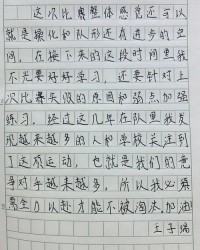 这次比赛整体感觉还可以
就是操化和队形还有进步的空
间。在接下来的这段时间里我
不光要好好学习,还要针对上
次比赛失误的原因和弱点加强
练习。经过这几年在队里我发
现越来越多的人和学校关注到
了这项运动,也就是我们的竞
争对手越来越多,所以我必须
要全力以赴才能不被淘汰。加油
王子